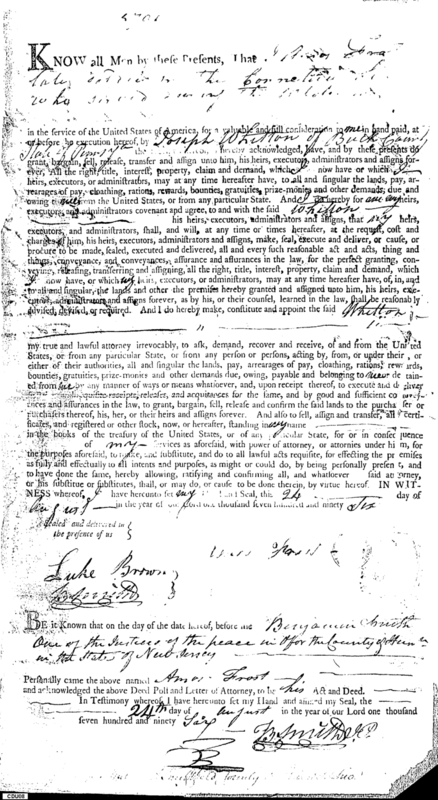 KNOW all Men by these Presents, That I Amos
in the service of the United States of America, for a valuable and full consideration to me in hand paid, at
or before the execution hereof, by Joseph Whitton of Bucks County
the receipt whereof hereby acknowledged, have, and by these presents do
grant, bargain, sell, release, transfer and assign unto him, his heirs, executors, administrators and assigns for-
ever, All the right, title, interest, property, claim and demand, which I now have or which
heirs, executors, or administrators, may at any time hereafter have, to all and singular the lands, pay, ar-
rearages of pay, cloathing, rations, rewards, bounties, gratuities, prize-monies and other demands, due and
owing to me from the United States, or from any particular State. And I do hereby for me my heirs,
executors, and administrators covenant and agree, to and with the said Whitton
his heirs, executors, administrators and assigns, that my heirs,
executors, and administrators, shall, and will, at any time or times hereafter, at the request, cost and
charges of him, his heirs, executors, administrators and assigns, make, seal, execute and deliver, or cause, or
procure to be made, sealed, executed and delivered, all and every such reasonable act and acts, thing and
things, conveyance, and conveyances, assurance and assurances in the law, for the perfect granting, con-
veying, releasing, transferring and assigning, all the right, title, interest, property, claim and demand, which
I now have, or which my heirs, executors, or administrators, may at any time hereafter have, of, in, and
to all and singular the lands and other the premises hereby granted and assigned unto him, his heirs, exe-
cutors, administrators and assigns forever, as by his, or their counsel, learned in the law, shall be reasonably
advised, devised, or required. And I do hereby make, constitute and appoint the said Whitton
my true and lawful attorney irrevocably, to ask, demand, recover and receive, of and from the United
States, or from any particular State, or from any person or persons, acting by, from, or under their, or
either of their authorities, all and singular the lands, pay, arrearages of pay, cloathing, rations, rewards,
bounties, gratuities, prize-monies and other demands due, owing, payable and belonging to me or detain-
ed from me by any manner of ways or means whatsoever, and, upon receipt thereof, to execute and deliver
receipts, releases, and acquittances for the same, and by good and sufficient convey-
ances and assurances in the law, to grant, bargain, sell, release and confirm the said lands to the purchaser or
purchasers thereof, his, her, or their heirs and assigns forever. And also to sell, assign and transfer, all certi-
ficates, and registered or other stock, now, or hereafter, standing in my name
in the books of the treasury of the United States, or of any particular State, for or in consequence
of my services as aforesaid, with power of attorney, or attornies under him, for
the purposes aforesaid, to make, and substitute, and do to all lawful acts requisite, for effecting the premises
as fully and effectually to all intents and purposes, as might or could do, by being personally present, and
to have done the same, hereby allowing, ratifying and confirming all, and whatsoever said attorney,
or his substitute or substitutes, shall, or may do, or cause to be done therein, by virtue hereof. IN WIT-
NESS whereof, I have hereunto set my Hand and Seal, this 24 day of
August in the year of our Lord one thousand seven hundred and ninety Six
Sealed and delivered in
the presence of us
Amos Frost
Luke Brown
B. Smith
BE it Known that on the day of the date hereof, before me Benjamin Smith
One of the Justices of the peace in & for the County of
in the State of New Jersey
Personally came the above named Amos Frost
and acknowledged the above Deed Poll and Letter of Attorney, to be his Act and Deed.
In Testimony whereof I have hereunto set my Hand and affixed my Seal, the
24th day of August in the year of our Lord one thousand
seven hundred and ninety Six
B. Smith